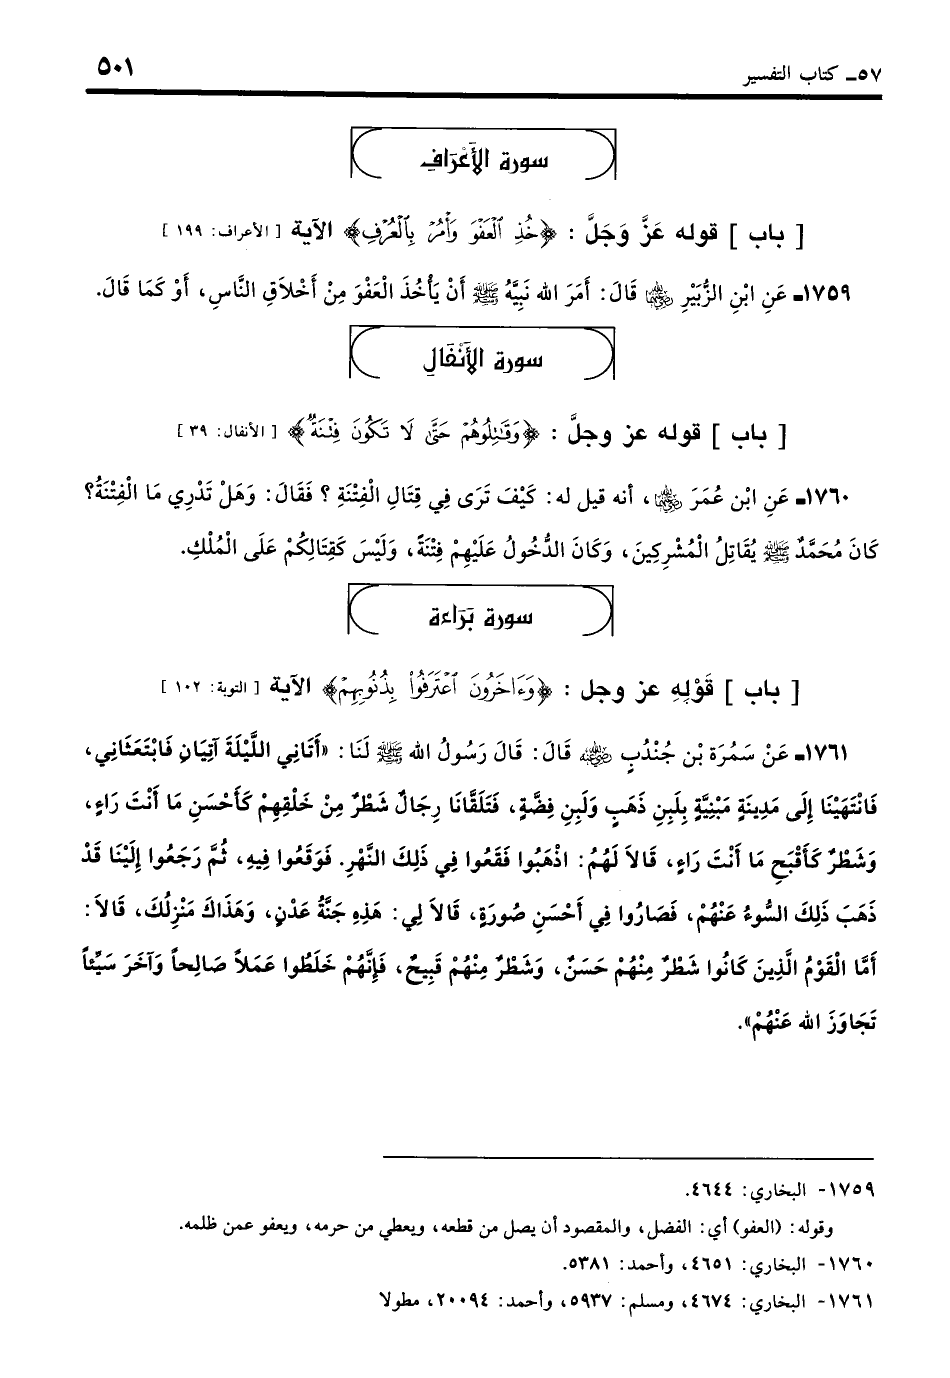 ٥٧ـ كتاب التفسير
٥٠١
سورة الأَعْرَافِ
[ باب ] قوله عَزَّ وَجَلَّ : ﴿خُذِ ٱلْعَفْوَ وَأْمُرْ بِٱلْعُرْفِ﴾ الآية [ الأعراف: ١٩٩ ]
١٧٥٩ـ عَنِ ابْنِ الزُّبَيْرِ ﵄ قَالَ: أَمَرَ الله نَبِيَّهُ ﷺ أَنْ يَأْخُذَ الْعَفْوَ مِنْ أَخْلاَقِ النَّاسِ، أَوْ كَمَا قَالَ.
سورة الأَنْفَالِ
[ باب ] قوله عز وجلَّ : ﴿وَقَٰتِلُوهُمْ حَتَّىٰ لَا تَكُونَ فِتْنَةٌ﴾ [ الأنفال: ٣٩ ]
١٧٦٠ـ عَنِ ابْن عُمَرَ ﵄، أنه قيل له: كَيْفَ تَرَى فِي قِتَالِ الْفِتْنَةِ ؟ فَقَالَ: وَهَلْ تَدْرِي مَا الْفِتْنَةُ؟
كَانَ مُحَمَّدٌ ﷺ يُقَاتِلُ الْمُشْرِكِينَ، وَكَانَ الدُّخُولُ عَلَيْهِمْ فِتْنَةً، وَلَيْسَ كَقِتَالِكُمْ عَلَى الْمُلْكِ.
سورة بَرَاءة
[ باب ] قَوْلِهِ عز وجل : ﴿وَءَاخَرُونَ ٱعْتَرَفُوا۟ بِذُنُوبِهِمْ﴾ الآية [ التوبة: ١٠٢ ]
١٧٦١ـ عَنْ سَمُرَة بْنِ جُنْدُبٍ ﵁ قَالَ: قَالَ رَسُولُ الله ﷺ لَنَا: «أَتَانِي اللَّيْلَةَ آتِيَانِ فَابْتَعَثَانِي،
فَانْتَهَيْنَا إِلَى مَدِينَةٍ مَبْنِيَّةٍ بِلَبِنِ ذَهَبٍ وَلَبِنِ فِضَّةٍ، فَتَلَقَّانَا رِجَالٌ شَطْرٌ مِنْ خَلْقِهِمْ كَأَحْسَنِ مَا أَنْتَ رَاءٍ،
وَشَطْرٌ كَأَقْبَحِ مَا أَنْتَ رَاءٍ، قَالاَ لَهُمُ: اذْهَبُوا فَقَعُوا فِي ذَلِكَ النَّهْرِ. فَوَقَعُوا فِيهِ، ثُمَّ رَجَعُوا إِلَيْنَا قَدْ
ذَهَبَ ذَلِكَ السُّوءُ عَنْهُمْ، فَصَارُوا فِي أَحْسَنِ صُورَةٍ، قَالاَ لِي: هَذِهِ جَنَّةُ عَدْنٍ، وَهَذَاكَ مَنْزِلُكَ، قَالاَ:
أَمَّا الْقَوْمُ الَّذِينَ كَانُوا شَطْرٌ مِنْهُمْ حَسَنٌ، وَشَطْرٌ مِنْهُمْ قَبِيحٌ، فَإِنَّهُمْ خَلَطُوا عَمَلاً صَالِحاً وَآخَرَ سَيِّئاً
تَجَاوَزَ الله عَنْهُمْ».
١٧٥٩- البخاري: ٤٦٤٤.
وقوله: (العفو) أي: الفضل، والمقصود أن يصل من قطعه، ويعطي من حرمه، ويعفو عمن ظلمه.
١٧٦٠- البخاري: ٤٦٥١، وأحمد: ٥٣٨١.
١٧٦١- البخاري: ٤٦٧٤، ومسلم: ٥٩٣٧، وأحمد: ٢٠٠٩٤، مطولا